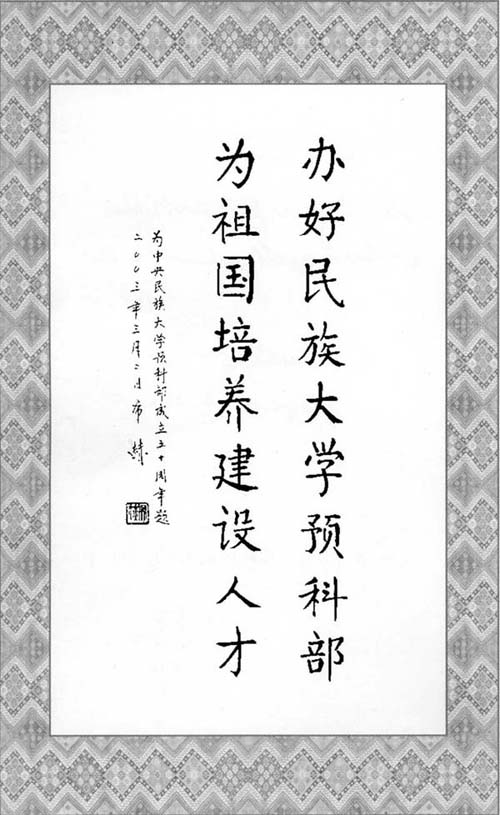 办好民族大学预科部
为祖国培养建设人才
为中央民族大学预科部成立五十周年题
二〇〇三年三月二日 布赫